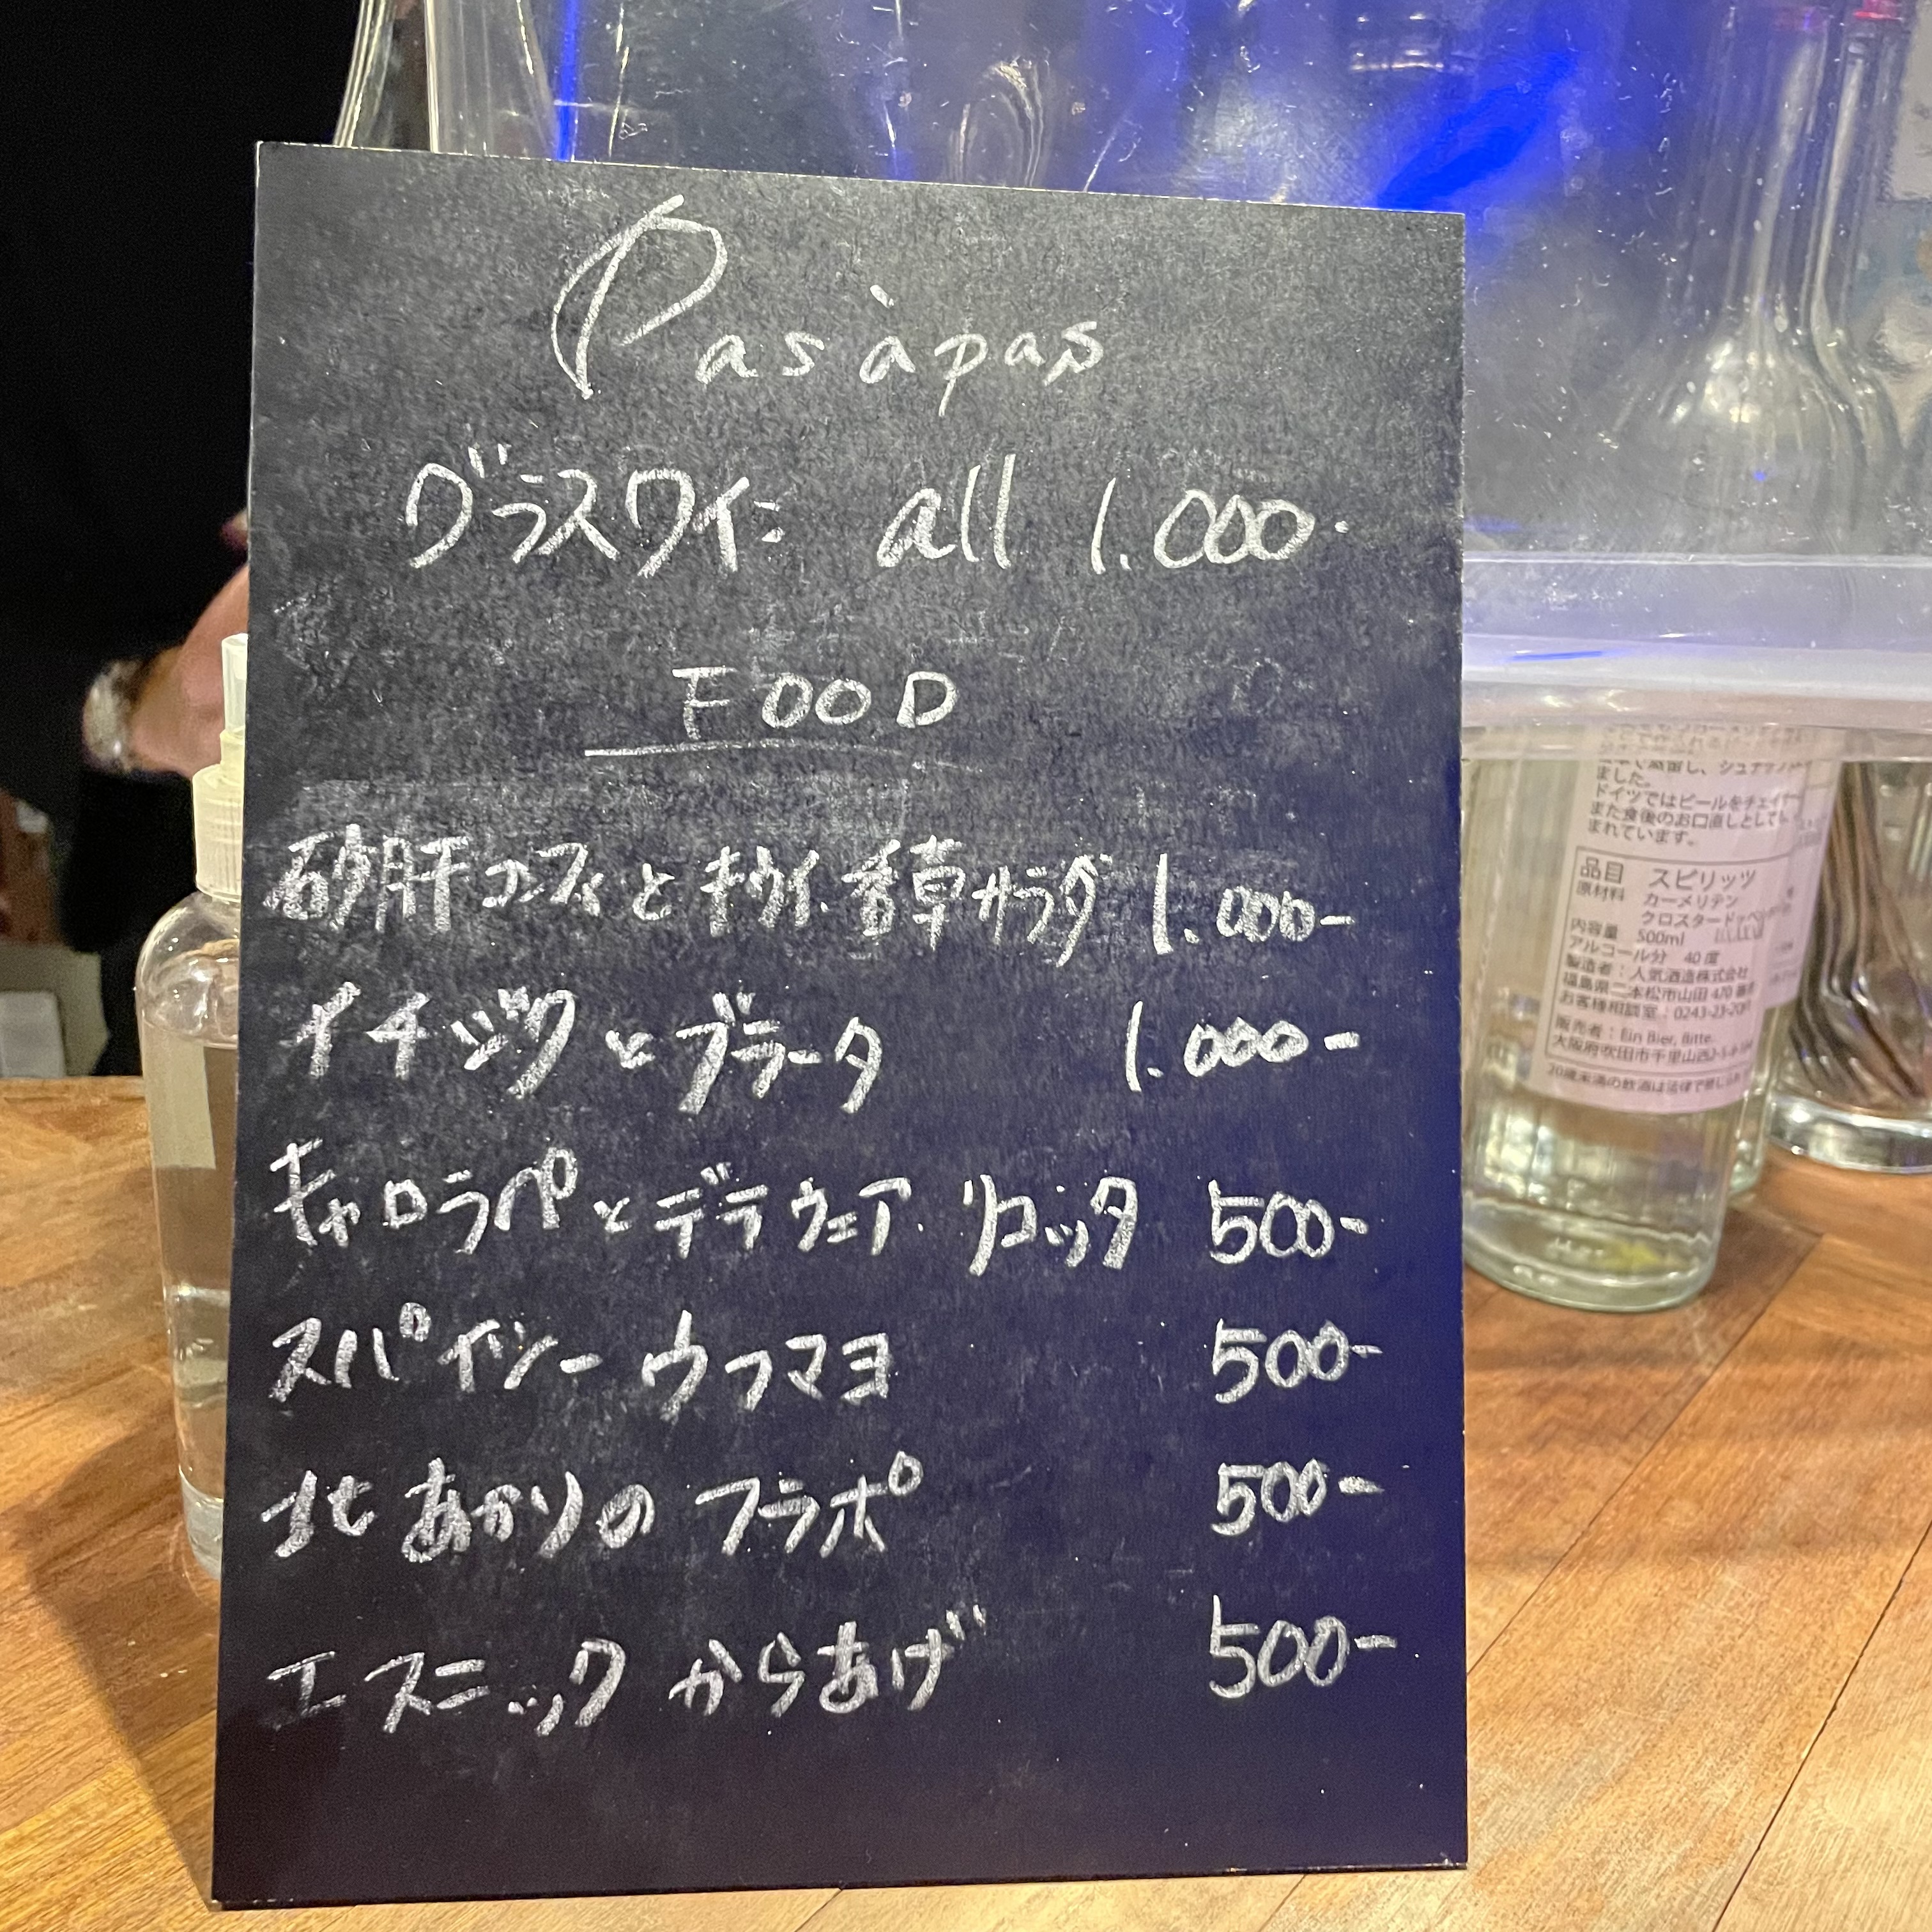 Pas à pas
グラスワイン all 1.000-
FOOD
砂肝コンフィとキウイ、香草サラダ 1.000-
イチジクとブラータ 1.000-
キャロラペとデラウェア、リコッタ 500-
スパイシーウフマヨ 500-
北あかりのフラポ 500-
エスニックからあげ 500-
ました。
ドイツではビールをチェイサー
また食後のお口直しとしても
まれています。
品目 スピリッツ
原材料 カーメリテン
内容量 500ml
アルコール分 40度
製造者:人気酒造株式会社
福島県二本松市山田470番
お客様相談室:0243-23-
販売者:Ein Bier, Bitte.
大阪府吹田市千里山西
20歳未満の飲酒は法律で禁じられ